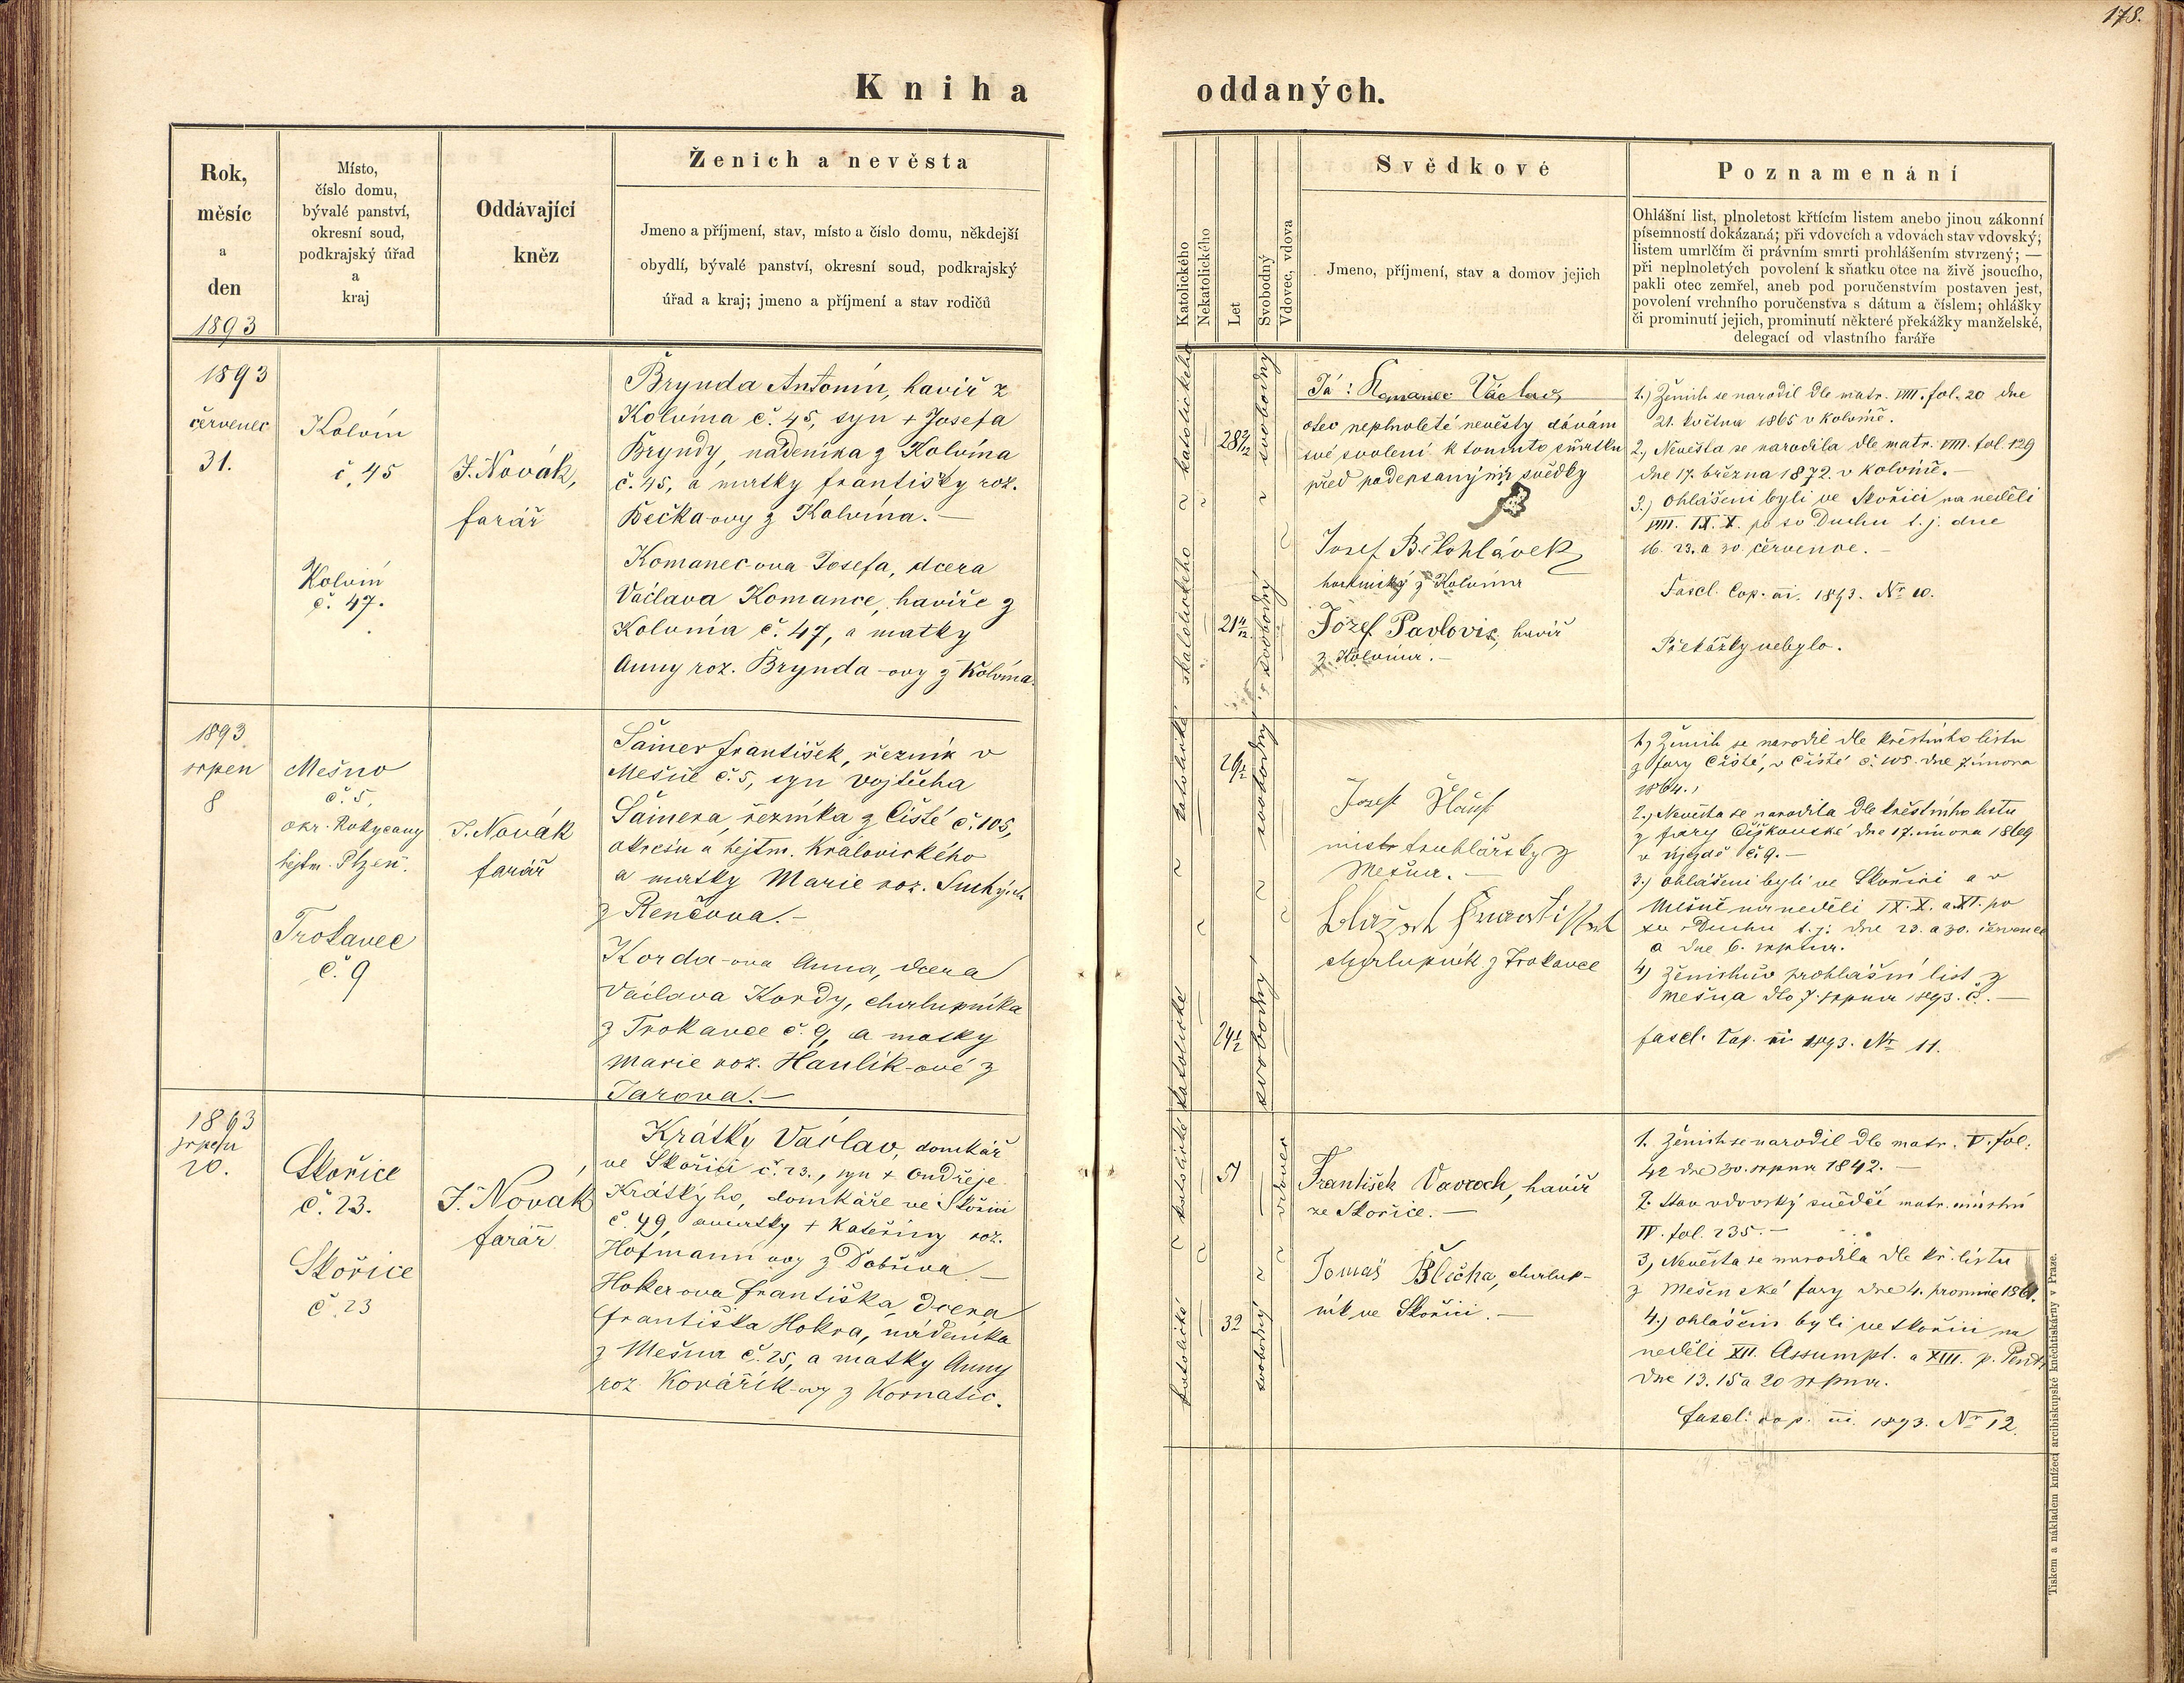 178.
Kniha oddaných.
Rok,
měsíc
a
den
1893
Místo,
číslo domu,
bývalé panství,
okresní soud,
podkrajský úřad
a
kraj
Oddávající
kněz
Ženich a nevěsta
Jmeno a příjmení, stav, místo a číslo domu, někdejší
obydlí, bývalé panství, okresní soud, podkrajský
úřad a kraj; jmeno a příjmení a stav rodičů
Katolického
Nekatolického
Let
Svobodný
Vdovec, vdova
Svědkové
Jmeno, příjmení, stav a domov jejich
Poznamenání
Ohlášní list, plnoletost křtícím listem anebo jinou zákonní
písemností dokázaná; při vdovcích a vdovách stav vdovský;
listem umrlčím či právním smrti prohlášením stvrzený; —
při neplnoletých povolení k sňatku otce na živě jsoucího,
pakli otec zemřel, aneb pod poručenstvím postaven jest,
povolení vrchního poručenstva s dátum a číslem; ohlášky
či prominutí jejich, prominutí některé překážky manželské,
delegací od vlastního faráře
1893
červenec
31.
Kolvín
č. 45
Kolvín
č. 47.
J. Novák,
farář
Brynda Antonín, havíř z
Kolvína č. 45, syn + Josefa
Bryndy, nádeníka z Kolvína
č. 45, a matky Františky roz.
Bečka-ovy z Kolvína. —
Komanec-ova Josefa, dcera
Václava Komance, havíře z
Kolvína č. 47, a matky
Anny roz. Brynda-ovy z Kolvína.
katolického
katolického
28 2/12
21 4/12
svobodný
svobodný
Já: Komanec Václav
otec neplnoleté nevěsty dávám
své svolení k tomuto sňatku
před podepsanými svědky
Josef Bělohlávek
z Kolvína
Józef Pavlovis, havíř
z Kolvína. —
1.) Ženich se narodil dle matr. VIII. fol. 20 dne
21. května 1865 v Kolvíně.
2.) Nevěsta se narodila dle matr. VIII. fol. 129
dne 17. března 1872. v Kolvíně. —
3.) Ohlášeni byli ve Skořici na neděli
VIII. IX. X. po sv Duchu t. j. dne
16. 23. a 30. července. —
Fascl. Cop. ai. 1893. Nr 10.
Překážky nebylo.
1893
srpen
8
Mešno
č. 5,
okr. Rokycany
hejtm. Plzeň.
Trokavec
č. 9
J. Novák
farář
Šainer František, řezník v
Mešně č. 5, syn Vojtěcha
Šainera, řezníka z Čisté č. 105,
okresu a hejtm. Královického
a matky Marie roz. Suchých
z Renčova. —
Korda-ova Anna, dcera
Václava Kordy, chalupníka
z Trokavce č. 9, a matky
Marie roz. Hanlík-ové z
Tarova. —
katolické
katolické
29 1/2
24 1/2
svobodný
svobodný
Josef
mistr truhlářský z
Mešna. —
chalupník z Trokavce
1.) Ženich se narodil dle křestního listu
z fary Čisté, v Čisté č. 105. dne 7. února
1864.,
2.) Nevěsta se narodila dle křestního listu
z fary Čížkovské dne 17. února 1869
v Újezdě č. 9. —
3.) ohlášeni byli ve Skořici a v
Mešně na neděli IX. X. a XI. po
sv. Duchu t. j. dne 23. a 30. července
a dne 6. srpna.
4) ženichův prohlášní list z
Mešna dto 7. srpna 1893. č. —
fascl. Cop. ai 1893. Nr 11.
1893
srpen
20.
Skořice
č. 23.
Skořice
č. 23
J. Novak
farář
Krátký Václav, domkář
ve Skořici č. 23., syn + Ondřeje
Krátkýho, domkáře ve Skořici
č. 49, a matky + Kateřiny roz.
Hofmann-ovy z Dobříva —
Hoker-ova Františka, dcera
Františka Hokra, nádeníka
z Mešna č. 25, a matky Anny
roz. Kovářík-ovy z Kornatic.
katolické
katolické
51
32
vdovec
svobodný
František Vavroch, havíř
ze Skořice. —
Tomaš Blecha, chalup-
ník ve Skořici. —
1. Ženich se narodil dle matr. V. fol.
42 dne 30. srpna 1842. —
2. Stav vdovský svědčí matr. místní
IV. fol. 235. —
3, Nevěsta se narodila dle kř. listu
z Mešenské fary dne 4. prosince 1861.
4.) ohlášeni byli ve Skořici na
neděli XII. Assumpt. a XIII. p. Pent.
dne 13. 15 a 20 srpna.
fascl. cop. ai. 1893. Nr 12.
Tiskem a nákladem knížecí arcibiskupské knihtiskárny v Praze.